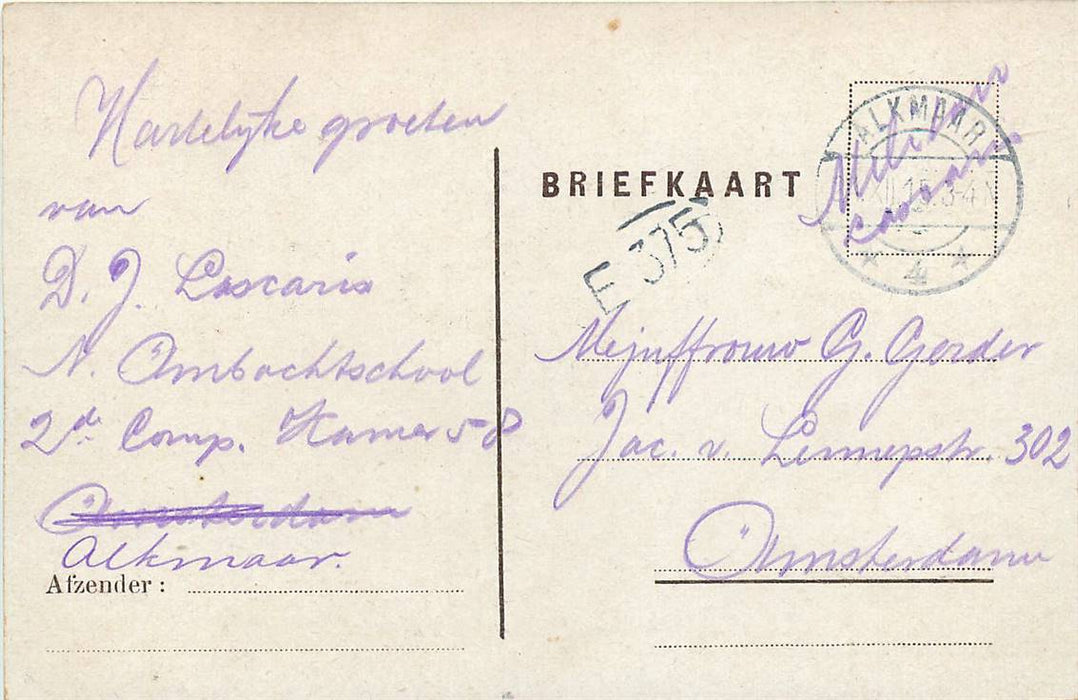 Hartelyke groeten
van
D. J. Lascaris
N. Ambachtschool
2de Comp. Kamer 58
Amsterdam
Alkmaar.
Afzender :
BRIEFKAART
E 375
Militair
ALKMAAR
XII.15 3-4N
4
Mejuffrouw G. Gorder
Jac. v. Lennepstr. 302
Amsterdam